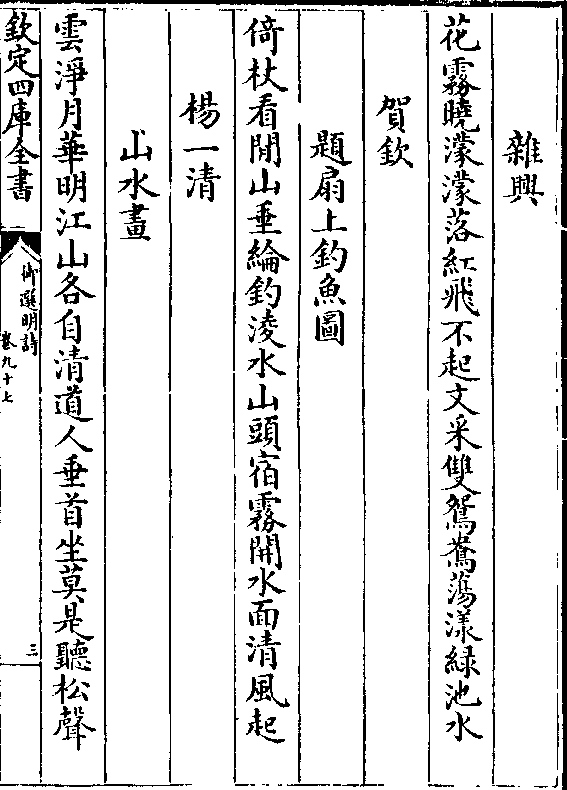 雜興
花霧曉濛濛落紅飛不起文采雙鴛鴦蕩漾緑池水
賀欽
題扇上釣魚圖
倚杖看閒山垂綸釣淩水山頭宿霧開水面清風起
楊一清
山水畫
雲淨月華明江山各自清道人垂首坐莫是聽松聲
欽定四庫全書
御選明詩
卷九十七
三